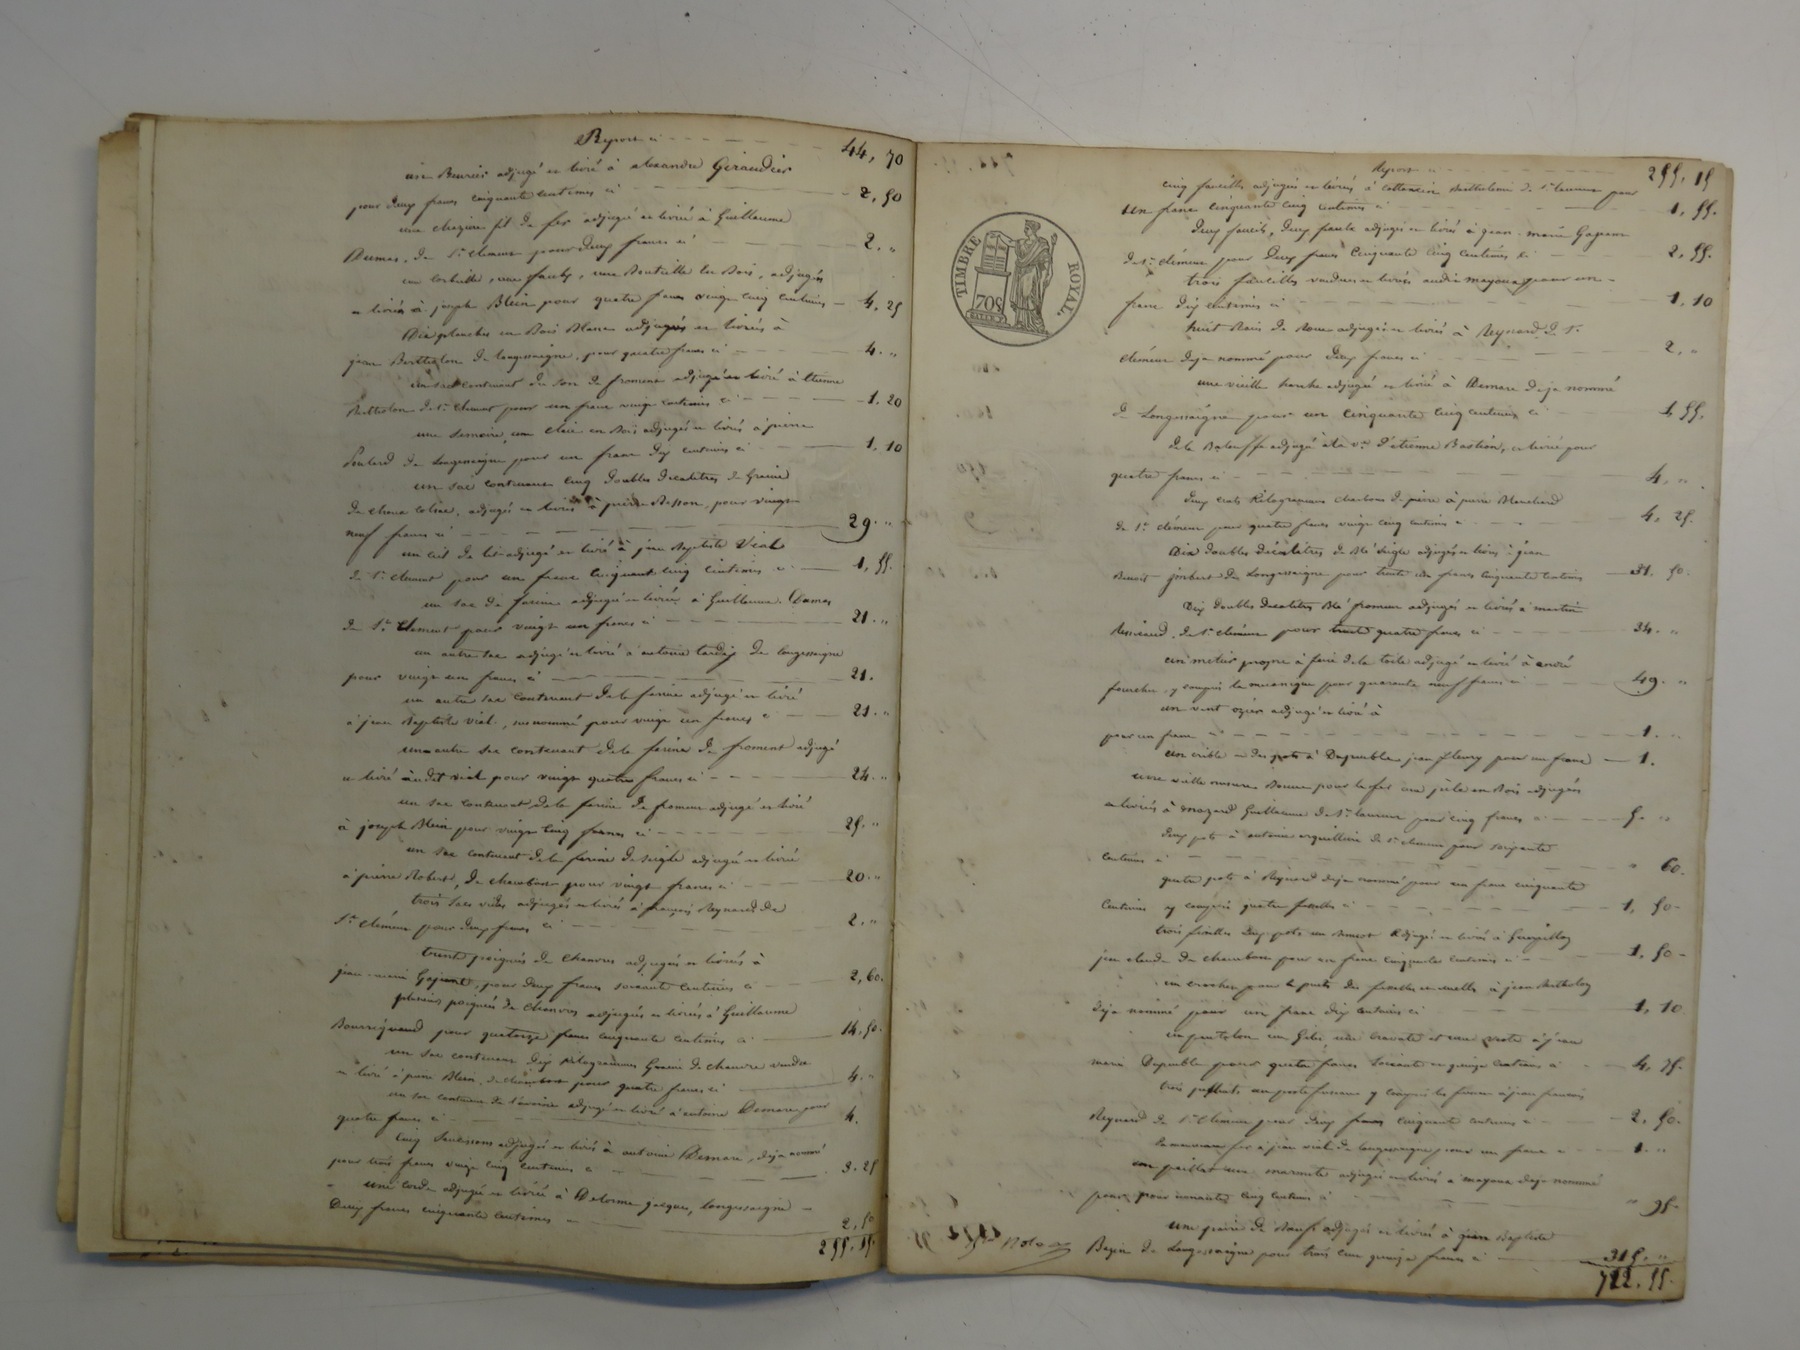 Report ci 44, 70
une Beurrier adjugé et livré à alexandre Giraudier
pour deux francs cinquante centimes ci 2, 50
une fil de fer adjugé et livré à Guillaume
Dumas, de St clement pour deux francs ci 2. "
une corbeille, une faulx, une Bouteille en Bois, adjugés
et livrés à joseph Blein pour quatre francs vingt cinq centimes 4, 25
Dix planches en Bois Blanc adjugés et livrés à
jean Bertholon de longessaigne, pour quatre francs ci 4. "
un sac contenant du son de froment adjugé et livré à Etienne
Bertholon de St Clement pour un franc vingt centimes ci 1. 20
une Semoire, une claie en Bois adjugés et livrés à pierre
de Longessaigne pour un franc dix centimes ci 1, 10
un sac contenant cinq doubles décalitres de Graine
de choux colsac, adjugés et livrés à pierre Besson, pour vingt
neuf francs ci 29. "
un ciel de lit adjugé et livré à jean Baptiste Vial
de St Clement pour un franc cinquante cinq centimes ci 1, 55.
un sac de farine adjugé et livré à Guillaume Dumas
de St Clement pour vingt un francs ci 21. "
un autre sac adjugé et livré à antoine tardif de longessaigne
pour vingt un francs ci 21.
un autre sac contenant de la farine adjugé et livré
à jean Baptiste Vial, susnommé pour vingt un francs ci 21. "
un autre sac contenant de la farine de froment adjugé
et livré audit vial pour vingt quatre francs ci 24. "
un sac contenant de la farine de froment adjugé et livré
à joseph Blein pour vingt cinq francs ci 25. "
un sac contenant de la farine de seigle adjugé et livré
à pierre Robert, de chambost pour vingt francs ci 20. "
trois sacs vides adjugés et livrés à françois Reynard de
St clément pour deux francs ci 2. "
trente poignés de Chanvre adjugés et livrés à
jean marie Gajeant, pour deux francs soixante centimes ci 2, 60.
plusieurs poignés de chanvre adjugés et livrés à Guillaume
pour quatorze francs cinquante centimes ci 14. 50.
un sac contenant dix kilogrammes Graine de chanvre vendu
et livré à pierre Blein, de chambost pour quatre francs ci 4. "
un sac contenant de l'avoine adjugé et livré à antoine Demare pour
quatre francs ci 4.
Cinq Saucissons adjugés et livrés à antoine Demare, deja nommé
pour trois francs vingt cinq centimes ci 3. 25
une corde adjugée et livrée à Delorme jacques, Longessaigne
Deux francs cinquante centimes 2, 50
255. 15.
Report ci 255. 15
cinq faucilles adjugées et livrés à Barthelemi de St laurent pour
un franc cinquante cinq centimes ci 1, 55.
deux faucils, deux faulx adjugés et livrés à jean marie Gajeant
de St clément pour Deux francs Cinquante cinq centimes ci 2, 55.
trois faucilles vendues et livrés audit mayoux pour un
franc dix centimes ci 1, 10
huit Rais de Roue adjugés et livré à Reynard de St
clément deja nommé pour deux francs ci 2, "
une vieille hache adjugée et livré à Demare deja nommé
de Longessaigne pour un cinquante cinq centimes ci 1, 55.
de la Balouffe adjugé à la ve d'etienne Bastion, et livré pour
quatre francs ci 4, "
deux cents Kilogrammes charbons de pierre à pierre Blanchard
de St clément pour quatre francs vingt cinq centimes ci 4, 25.
Dix doubles décalitres de Blé Seigle adjugés et livrés à jean
Benoit jmbert de Longessaigne pour trente un francs cinquante centimes 31. 50.
Dix doubles decalitres Blé froment adjugés et livrés à martin
de St clément pour trente quatre francs ci 34. "
un métier propre à faire de la toile adjugé et livré à andré
y compris la mecanique pour quarante neuf francs ci 49. "
un vent ozier adjugé et livré à
pour un franc ci 1. "
un crible et des pots à Dupeuble jean fleury pour un franc 1.
une vielle mesure Bonne pour le fer une en Bois adjugés
et livrés à mazard Guillaume de St laurent pour cinq francs ci 5. "
deux pots à antoine de St clement pour soixante
centimes ci " 60.
quatre pots à Reynard deja nommé pour un franc cinquante
centimes y compris quatre faisselles ci 1, 50
trois deux pots adjugés et livrés à
jean claude de chambost pour un franc cinquante centimes ci 1, 50
un crochet pour le puits des à jean Bertholon
deja nommé pour un franc dix centimes ci 1, 10
un pantalon un Gilet, une cravate et une veste à jean
marie Dupeuble pour quatre francs soixante et quinze centimes ci 4, 75.
trois un y compris le à jean francois
Reynard de St Clement pour deux francs cinquante centimes ci 2, 50.
fer à jean vial de longessaigne pour un franc ci 1. "
une marmite adjugée et livrés à mayoux deja nommé
pour nonante cinq centimes ci " 95.
une paire de Bœufs adjugés et livrés à jean Baptiste
Bazin de Longessaigne pour trois cent quinze francs ci 315. "
722. 55.
TIMBRE ROYAL.
70c